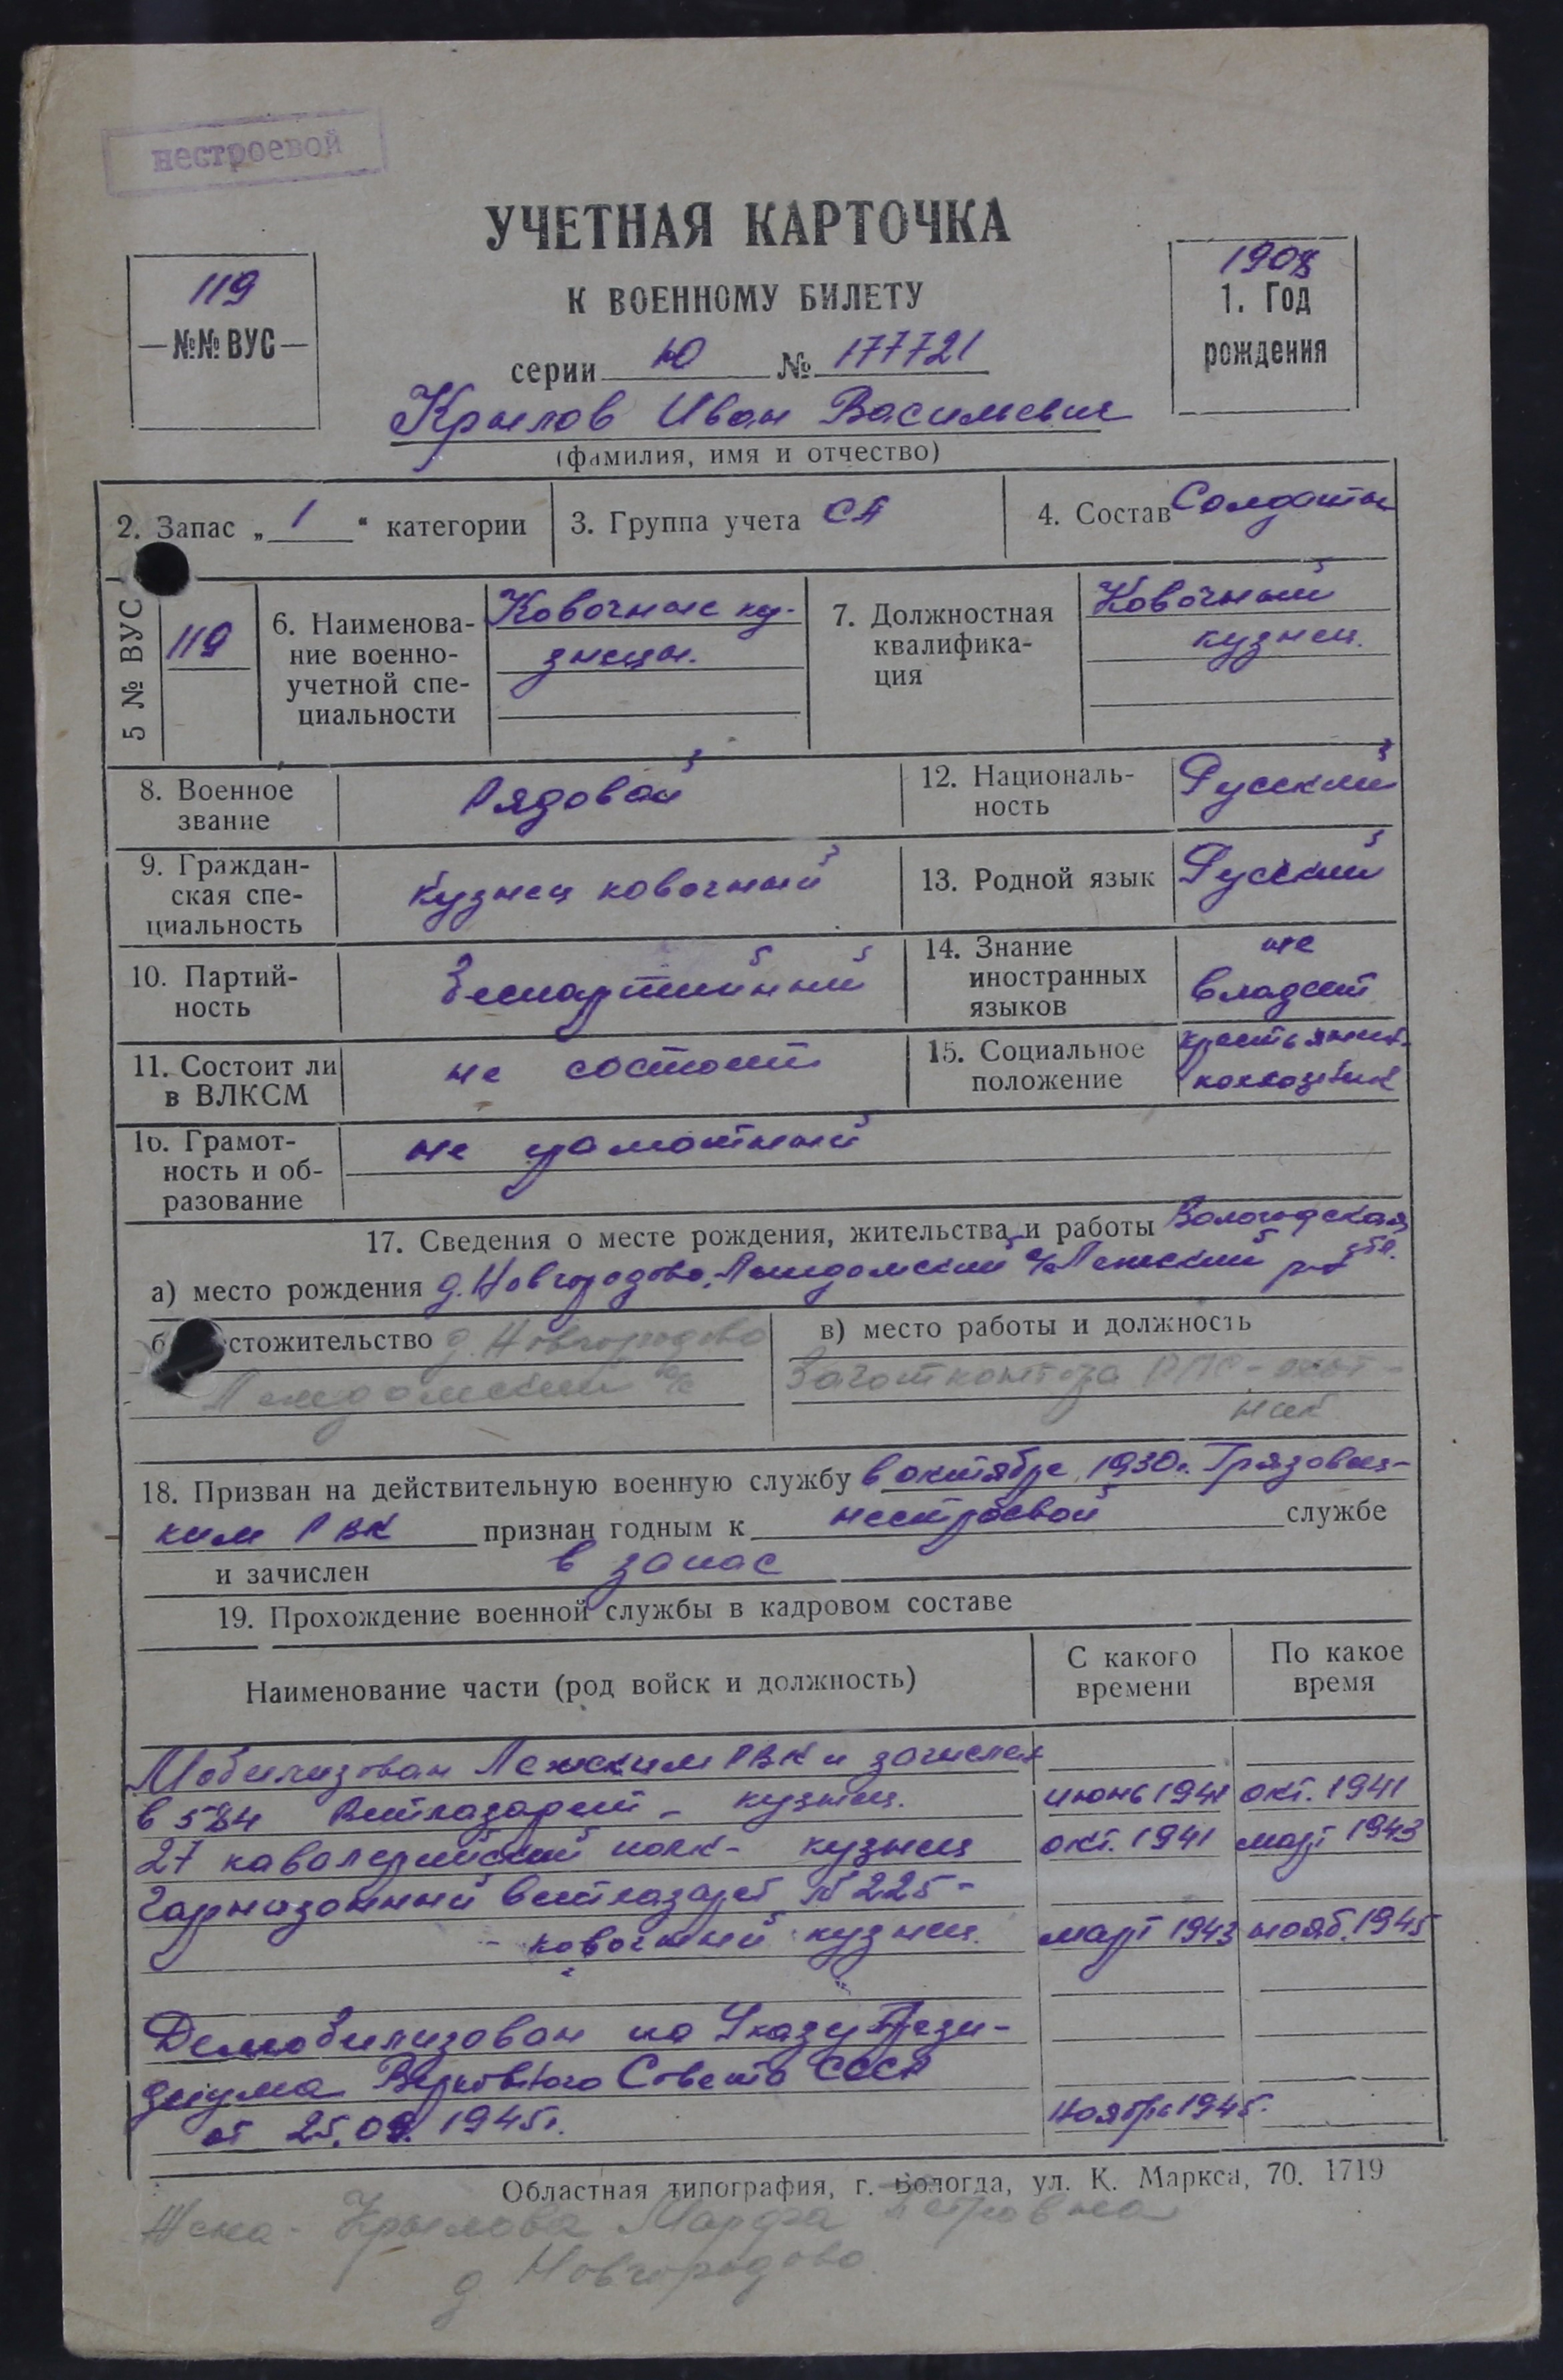 нестроевой
УЧЕТНАЯ КАРТОЧКА
К ВОЕННОМУ БИЛЕТУ
119
—№№ ВУС—
1908
1. Год
рождения
серии Ю № 177721
Крылов Иван Васильевич
(фамилия, имя и отчество)
2. Запас „ 1 “ категории
3. Группа учета СА
4. Состав Солдаты
5 № ВУС
119
6. Наименова-
ние военно-
учетной спе-
циальности
Ковочные ку-
знецы.
7. Должностная
квалифика-
ция
Ковочный
кузнец.
8. Военное
звание
Рядовой
12. Националь-
ность
Русский
9. Граждан-
ская спе-
циальность
кузнец ковочный
13. Родной язык
Русский
10. Партий-
ность
беспартийный
14. Знание
иностранных
языков
не
владеет
11. Состоит ли
в ВЛКСМ
не состоит
15. Социальное
положение
колхозник
16. Грамот-
ность и об-
разование
не грамотный
17. Сведения о месте рождения, жительства и работы Вологодская обл.
а) место рождения д. Новгородово, с/с Лежский р-н
стожительство д. Новгородово
с/с
в) место работы и должность
Заготконтора
18. Призван на действительную военную службу в октябре 1930г. Грязовец-
ким РВК признан годным к нестроевой службе
и зачислен в запас
19. Прохождение военной службы в кадровом составе
Наименование части (род войск и должность)
С какого
времени
По какое
время
Мобилизован Лежским РВК и зачислен
в 584 Ветлазарет - кузнец. июнь 1941 окт. 1941
27 кавалерийский полк - кузнец окт. 1941 март 1943
Гарнизонный ветлазарет № 225 -
- ковочный кузнец. март 1943 нояб. 1945
Демобилизован по Указу Прези-
диума Верховного Совета СССР
от 25.09.1945г. ноябрь 1945.
Областная типография, г. Вологда, ул. К. Маркса, 70. 1719
Жена - Крылова Марфа Петровна
д. Новгородово.